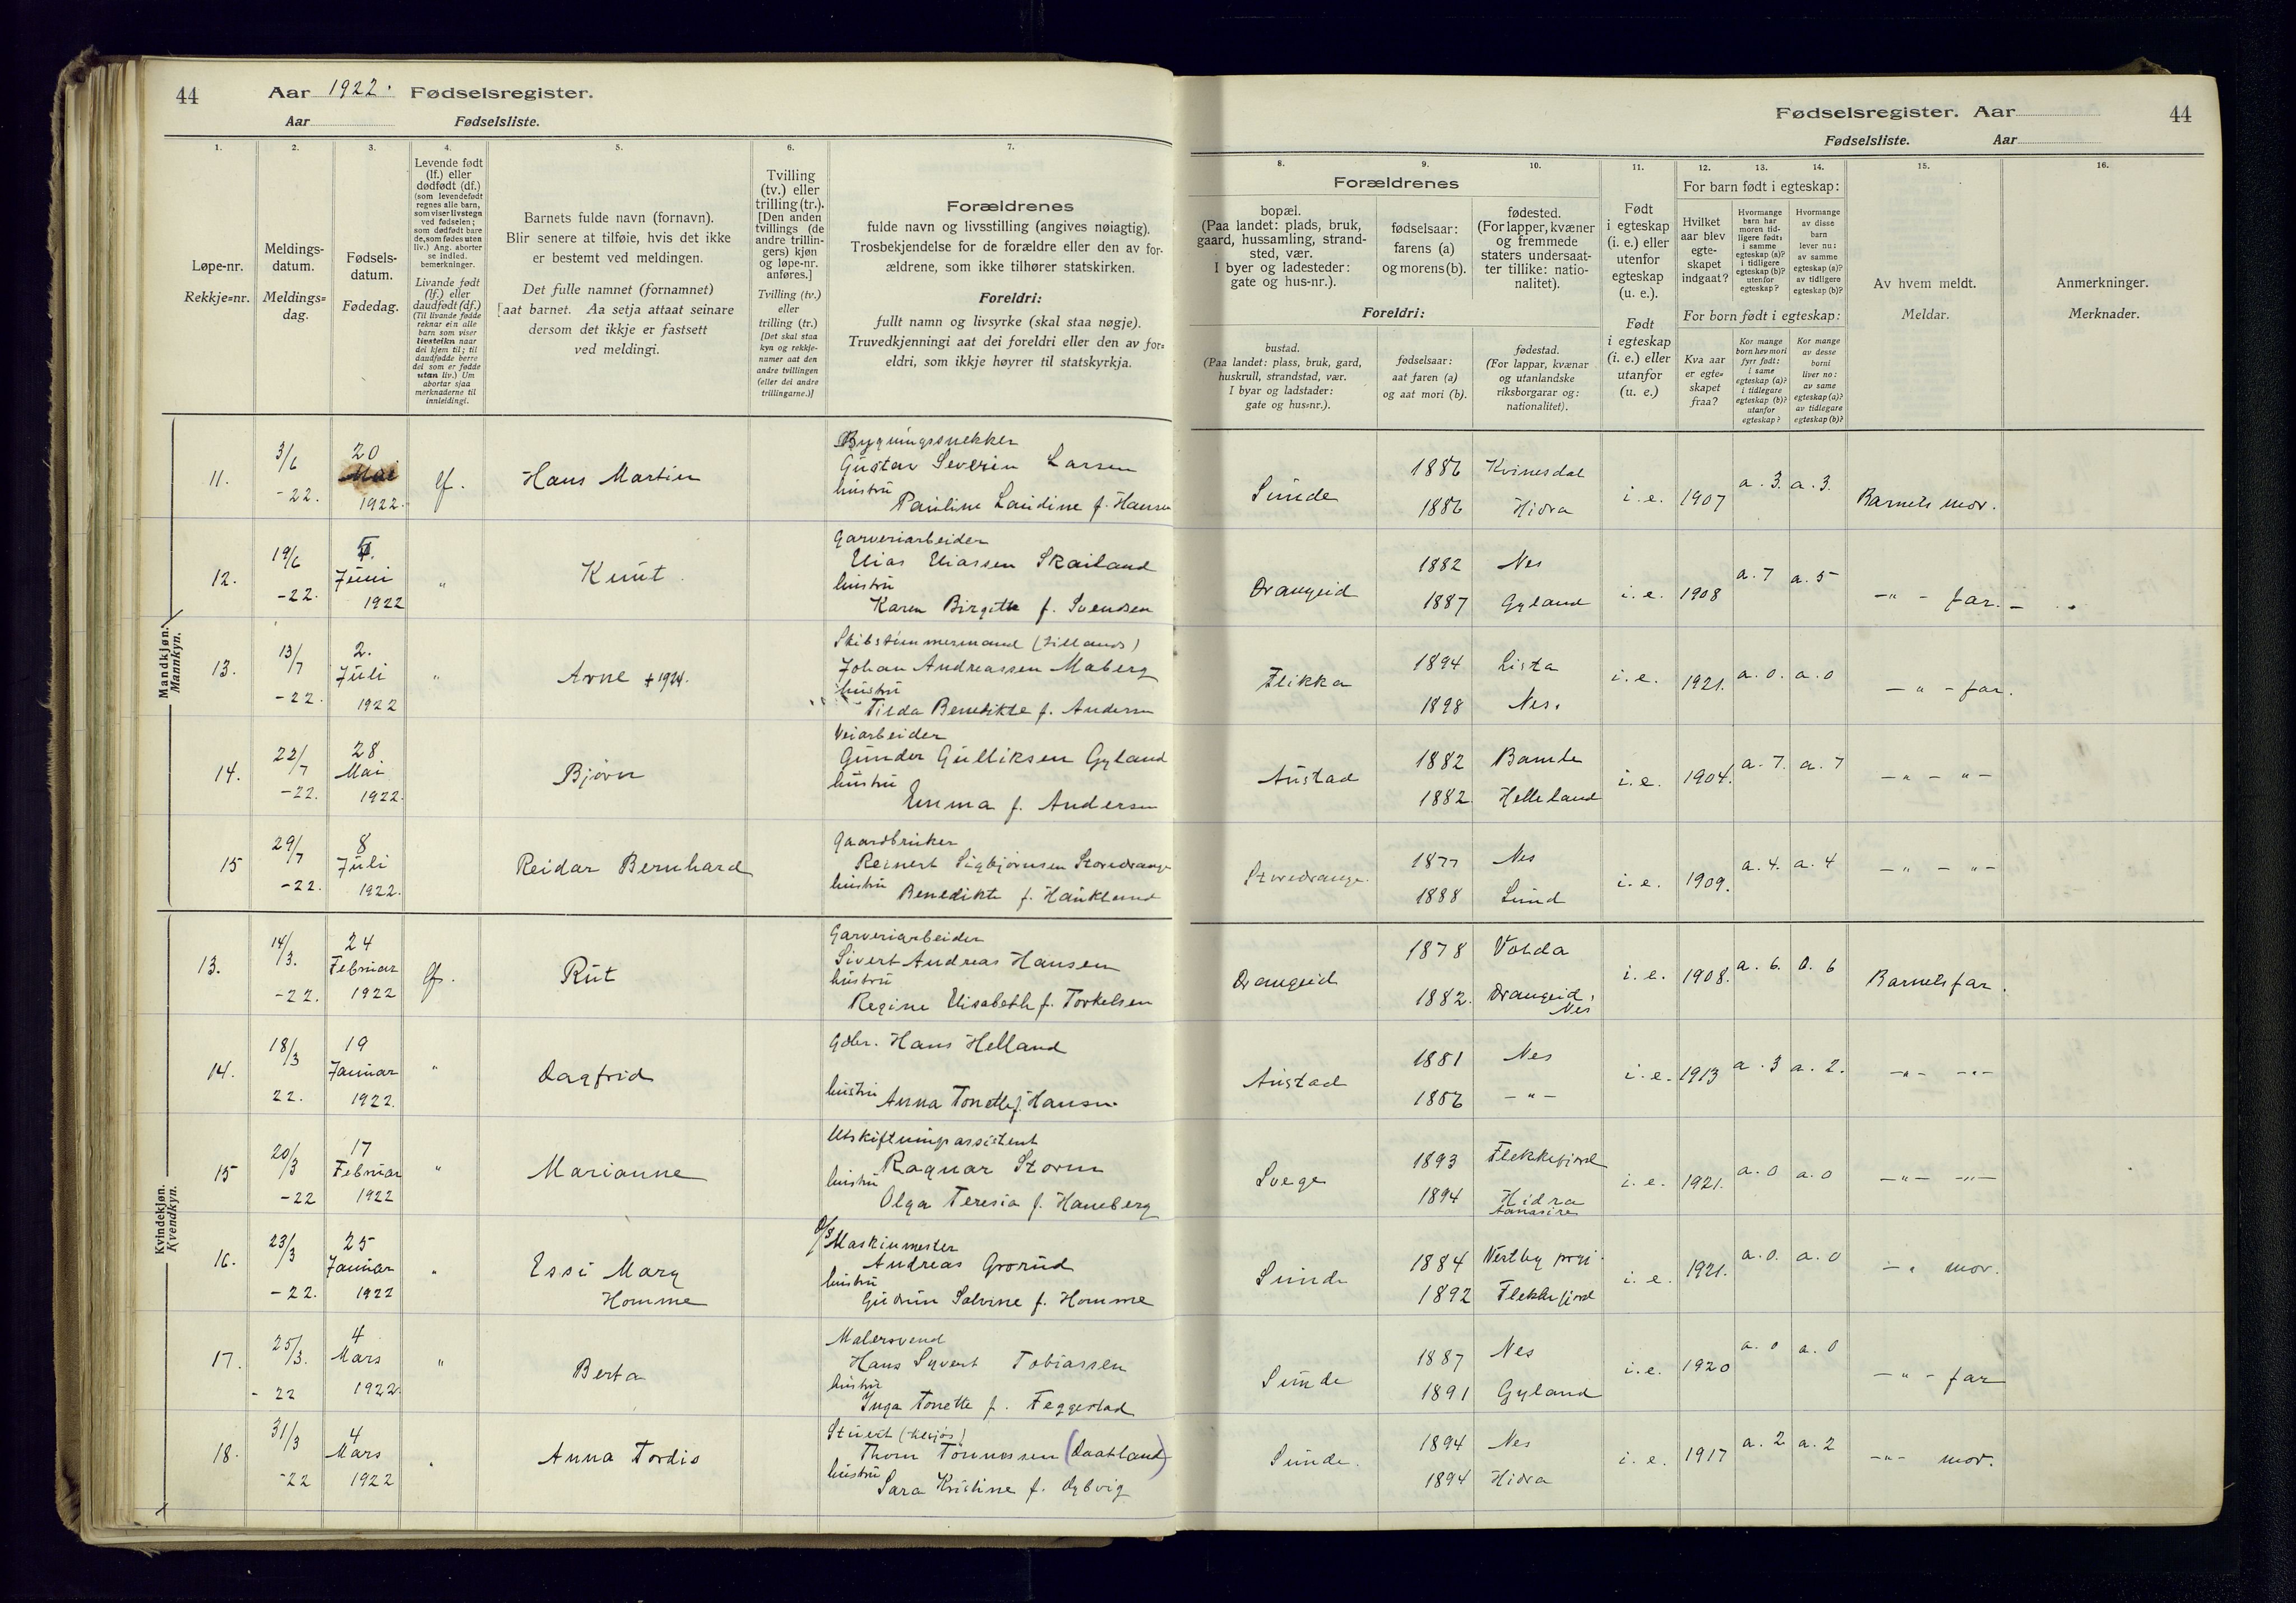 44
Aar 1922. Fødselsregister.
Aar Fødselsliste.
1. 2. 3. 4. 5. 6. 7.
Løpe-nr.
Rekkje=nr.
Meldings-
datum.
Meldings=
dag.
Fødsels-
datum.
Fødedag.
Levende født
(lf.) eller
dødfødt (df.)
(som levendefødt
regnes alle barn,
som viser livstegn
ved fødselen;
som dødfødt bare
de, som fødes uten
liv.) Ang. aborter
se indled.
bemerkninger.
Livande født
(lf.) eller
daudfødt (df.)
(Til livande fødde
reknar ein alle
barn som viser
livsteikn naar
dei kjem til; til
daudfødde berre
dei som er fødde
utan liv.) Um
abortar sjaa
merknaderne til
innleidingi.
Barnets fulde navn (fornavn).
Blir senere at tilføie, hvis det ikke
er bestemt ved meldingen.
Det fulle namnet (fornamnet)
[aat barnet. Aa setja attaat seinare
dersom det ikkje er fastsett
ved meldingi.
Tvilling
(tv.) eller
trilling (tr.).
[Den anden
tvillings (de
andre trillin-
gers) kjøn
og løpe-nr.
anføres.]
Tvilling (tv.)
eller
trilling (tr.)
[Det skal staa
kyn og rekkje-
numer aat den
andre tvillingen
(eller dei andre
trillingarne.)]
Forældrenes
fulde navn og livsstilling (angives nøiagtig).
Trosbekjendelse for de forældre eller den av for-
ældrene, som ikke tilhører statskirken.
Foreldri:
fullt namn og livsyrke (skal staa nøgje).
Truvedkjenningi aat dei foreldri eller den av for=
eldri, som ikkje høyrer til statskyrkja.
Mandkjøn.
Mannkyn.
11. 3/6 -22. 20 Mai 1922. lf. Hans Martin
Bygningssnekker
Gustav Severin Larsen
hustru
Pauline Laudine f. Hansen
12. 19/6 -22. Juni 1922 " Knut
Garveriarbeider
Elias Eliassen Skailand
hustru
Karen Birgitte f. Svendsen
13. 13/7 -22. 2. Juli 1922 " Arne + 1924.
Skibstømmermand (tillands)
Johan Andreassen Maberg
hustru
Tilda Benedikte f. Andersen
14. 22/7 -22. 28 Mai 1922. Bjørn
Veiarbeider
Gunder Gulliksen Gyland
hustru
Emma f. Andersen
15 29/7 -22. 8 Juli 1922. Reidar Bernhard
Gaardbruker
Reinert Sigbjørnsen Storedrange
hustru
Benedikte f. Haukland
Kvindekjøn.
Kvendkyn.
13. 14/3. -22. 24 Februar 1922 lf. Rut
Garveriarbeider
Sivert Andreas Hansen
hustru
Regine Elisabeth f. Torkelsen
14. 18/3 22. 19 Januar 1922. " Dagfrid
Gdbr. Hans Helland
hustru
Anna Tonette f. Hansen
15 20/3 -22 17 Februar 1922 " Marianne
Utskiftningsassistent
Ragnar Storm
hustru
Olga Teresia f. Haneberg
16. 23/3 -22. 25 Januar 1922 " Essi Mary
Homme
D/S Maskinmester
Andreas Grorud
hustru
Gudrun Salvine f. Homme
17. 25/3. - 22 4 Mars 1922. " Berta
Malersvend
Hans Syvert Tobiassen
hustru
Inga Tonette f. Feggestad
18. 31/3 -22 4 Mars 1922 " Anna Tordis
Stuert (tilsjøs)
Thom Tønnessen (Daatland)
hustru
Sara Kristine f. Dybvig
Fødselsregister. Aar
44
Fødselsliste. Aar
8. 9. 10. 11. 12. 13. 14. 15. 16.
Forældrenes
bopæl.
(Paa landet: plads, bruk,
gaard, hussamling, strand-
sted, vær.
I byer og ladesteder:
gate og hus-nr.).
fødselsaar:
farens (a)
og morens (b).
fødested.
(For lapper, kvæner
og fremmede
staters undersaat-
ter tillike: natio-
nalitet).
Foreldri:
bustad.
(Paa landet: plass, bruk, gard,
huskrull, strandstad, vær.
I byar og ladstader:
gate og hus=nr.).
fødselsaar:
aat faren (a)
og aat mori (b).
fødestad.
(For lappar, kvænar
og utanlandske
riksborgarar og:
nationalitet).
Født
i egteskap
(i. e.) eller
utenfor
egteskap
(u. e.).
Født
i egteskap
(i. e.) eller
utanfor
(u. e.)
For barn født i egteskap:
Hvilket
aar blev
egte-
skapet
indgaat?
Hvormange
barn har
moren tid-
ligere født:
i samme
egteskap (a)?
i tidligere
egteskap (b)?
utenfor
egteskap?
Hvormange
av disse
barn
lever nu:
av samme
egteskap (a)?
av tidligere
egteskap (b)?
For born født i egteskap:
Kva aar
er egte=
skapet
fraa?
Kor mange
born hev mori
fyrr født:
i same
egteskap (a)?
i tidlegare
egteskap (b)?
utanfor
egteskap?
Kor mange
av desse
borni
liver no:
av same
egteskap (a)?
av tidlegare
egteskap (b)?
Av hvem meldt.
Meldar.
Anmerkninger.
Merknader.
Sunde 1886 Kvinesdal
1886 Hidra i. e. 1907 a. 3. a. 3. Barnets mor.
Drangeid 1882 Nes
1887 Gyland i. e. 1908 a. 7 a. 5 -"- far.
Flikka 1894 Lista
1898 Nes. i. e. 1921. a. 0. a. 0 -"- far.
Austad 1882 Bamle
1882 Helleland i. e. 1904. a. 7. a. 7 -"- "-
Storedrange. 1877 Nes
1888 Lund i. e. 1909. a. 4. a. 4 -"- -"-
Drangeid 1878 Volda
1882. Drangeid, Nes i. e. 1908. a. 6. b. 6 Barnets far.
Austad 1881 Nes
1886 -"- i. e. 1913 a. 3 a. 2. -"- -"-
Svege 1893 Flekkefjord
1894 Hidra Aanasira i. e. 1921. a. 0 a. 0 -"- -"-
Sunde 1884 Vestby
1892 Flekkefjord i. e. 1921. a. 0. a. 0 -" mor.
Sunde 1887 Nes
1891 Gyland i. e. 1920 a. 0 a. 0 -"- far
Sunde. 1894 Nes
1894 Hidra i. e. 1917 a. 2 a. 2 -"- mor.